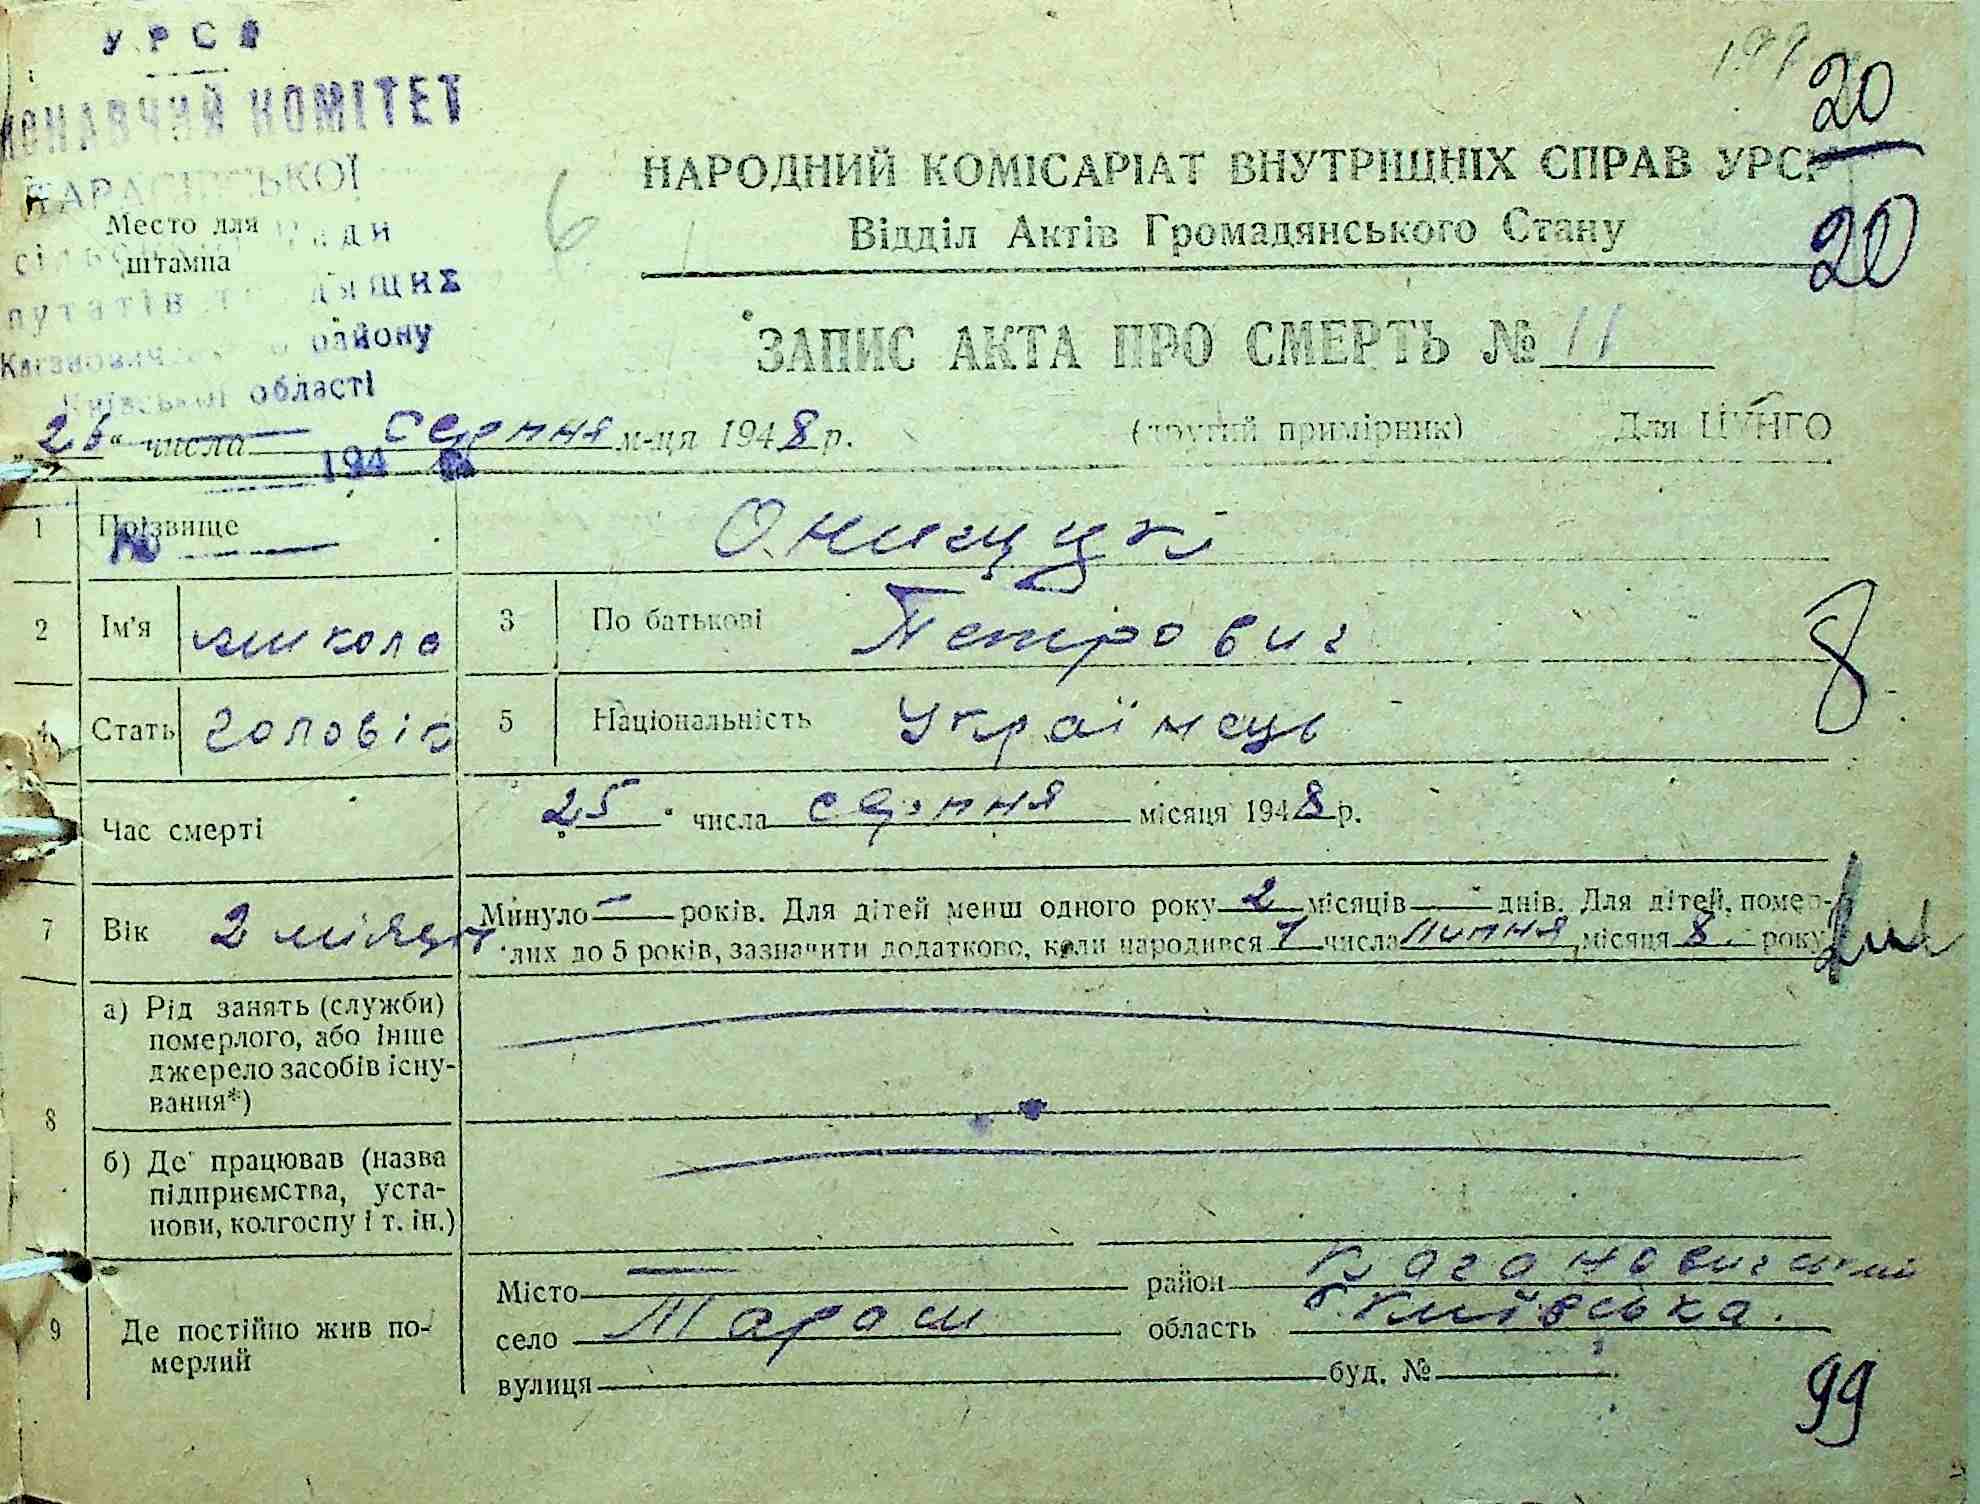 УРСР
КОМІТЕТ
Место для
штампа
району
області
194
20
20
НАРОДНИЙ КОМІСАРІАТ ВНУТРІШНІХ СПРАВ УРСР
Відділ Актів Громадянського Стану
6
ЗАПИС АКТА ПРО СМЕРТЬ № 11
числа серпня м-ця 1948 р. (другий примірник) Для ЦУНГО
1 Прізвище
2 Ім'я микола 3 По батькові Петрович
8
4 Стать головік 5 Національність Українець
Час смерті 25 числа серпня місяця 1948 р.
7 Вік 2 місяци Минуло — років. Для дітей менш одного року 2 місяців — днів. Для дітей, помер-
лих до 5 років, зазначити додатково, коли народився 1 числа липня місяця 8. року
8 а) Рід занять (служби)
померлого, або інше
джерело засобів існу-
вання*)
б) Де працював (назва
підприємства, уста-
нови, колгоспу і т. ін.)
9 Де постійно жив по-
мерлий
Місто — район Кагановичський
село Тараси область Київська.
вулиця буд. №
99